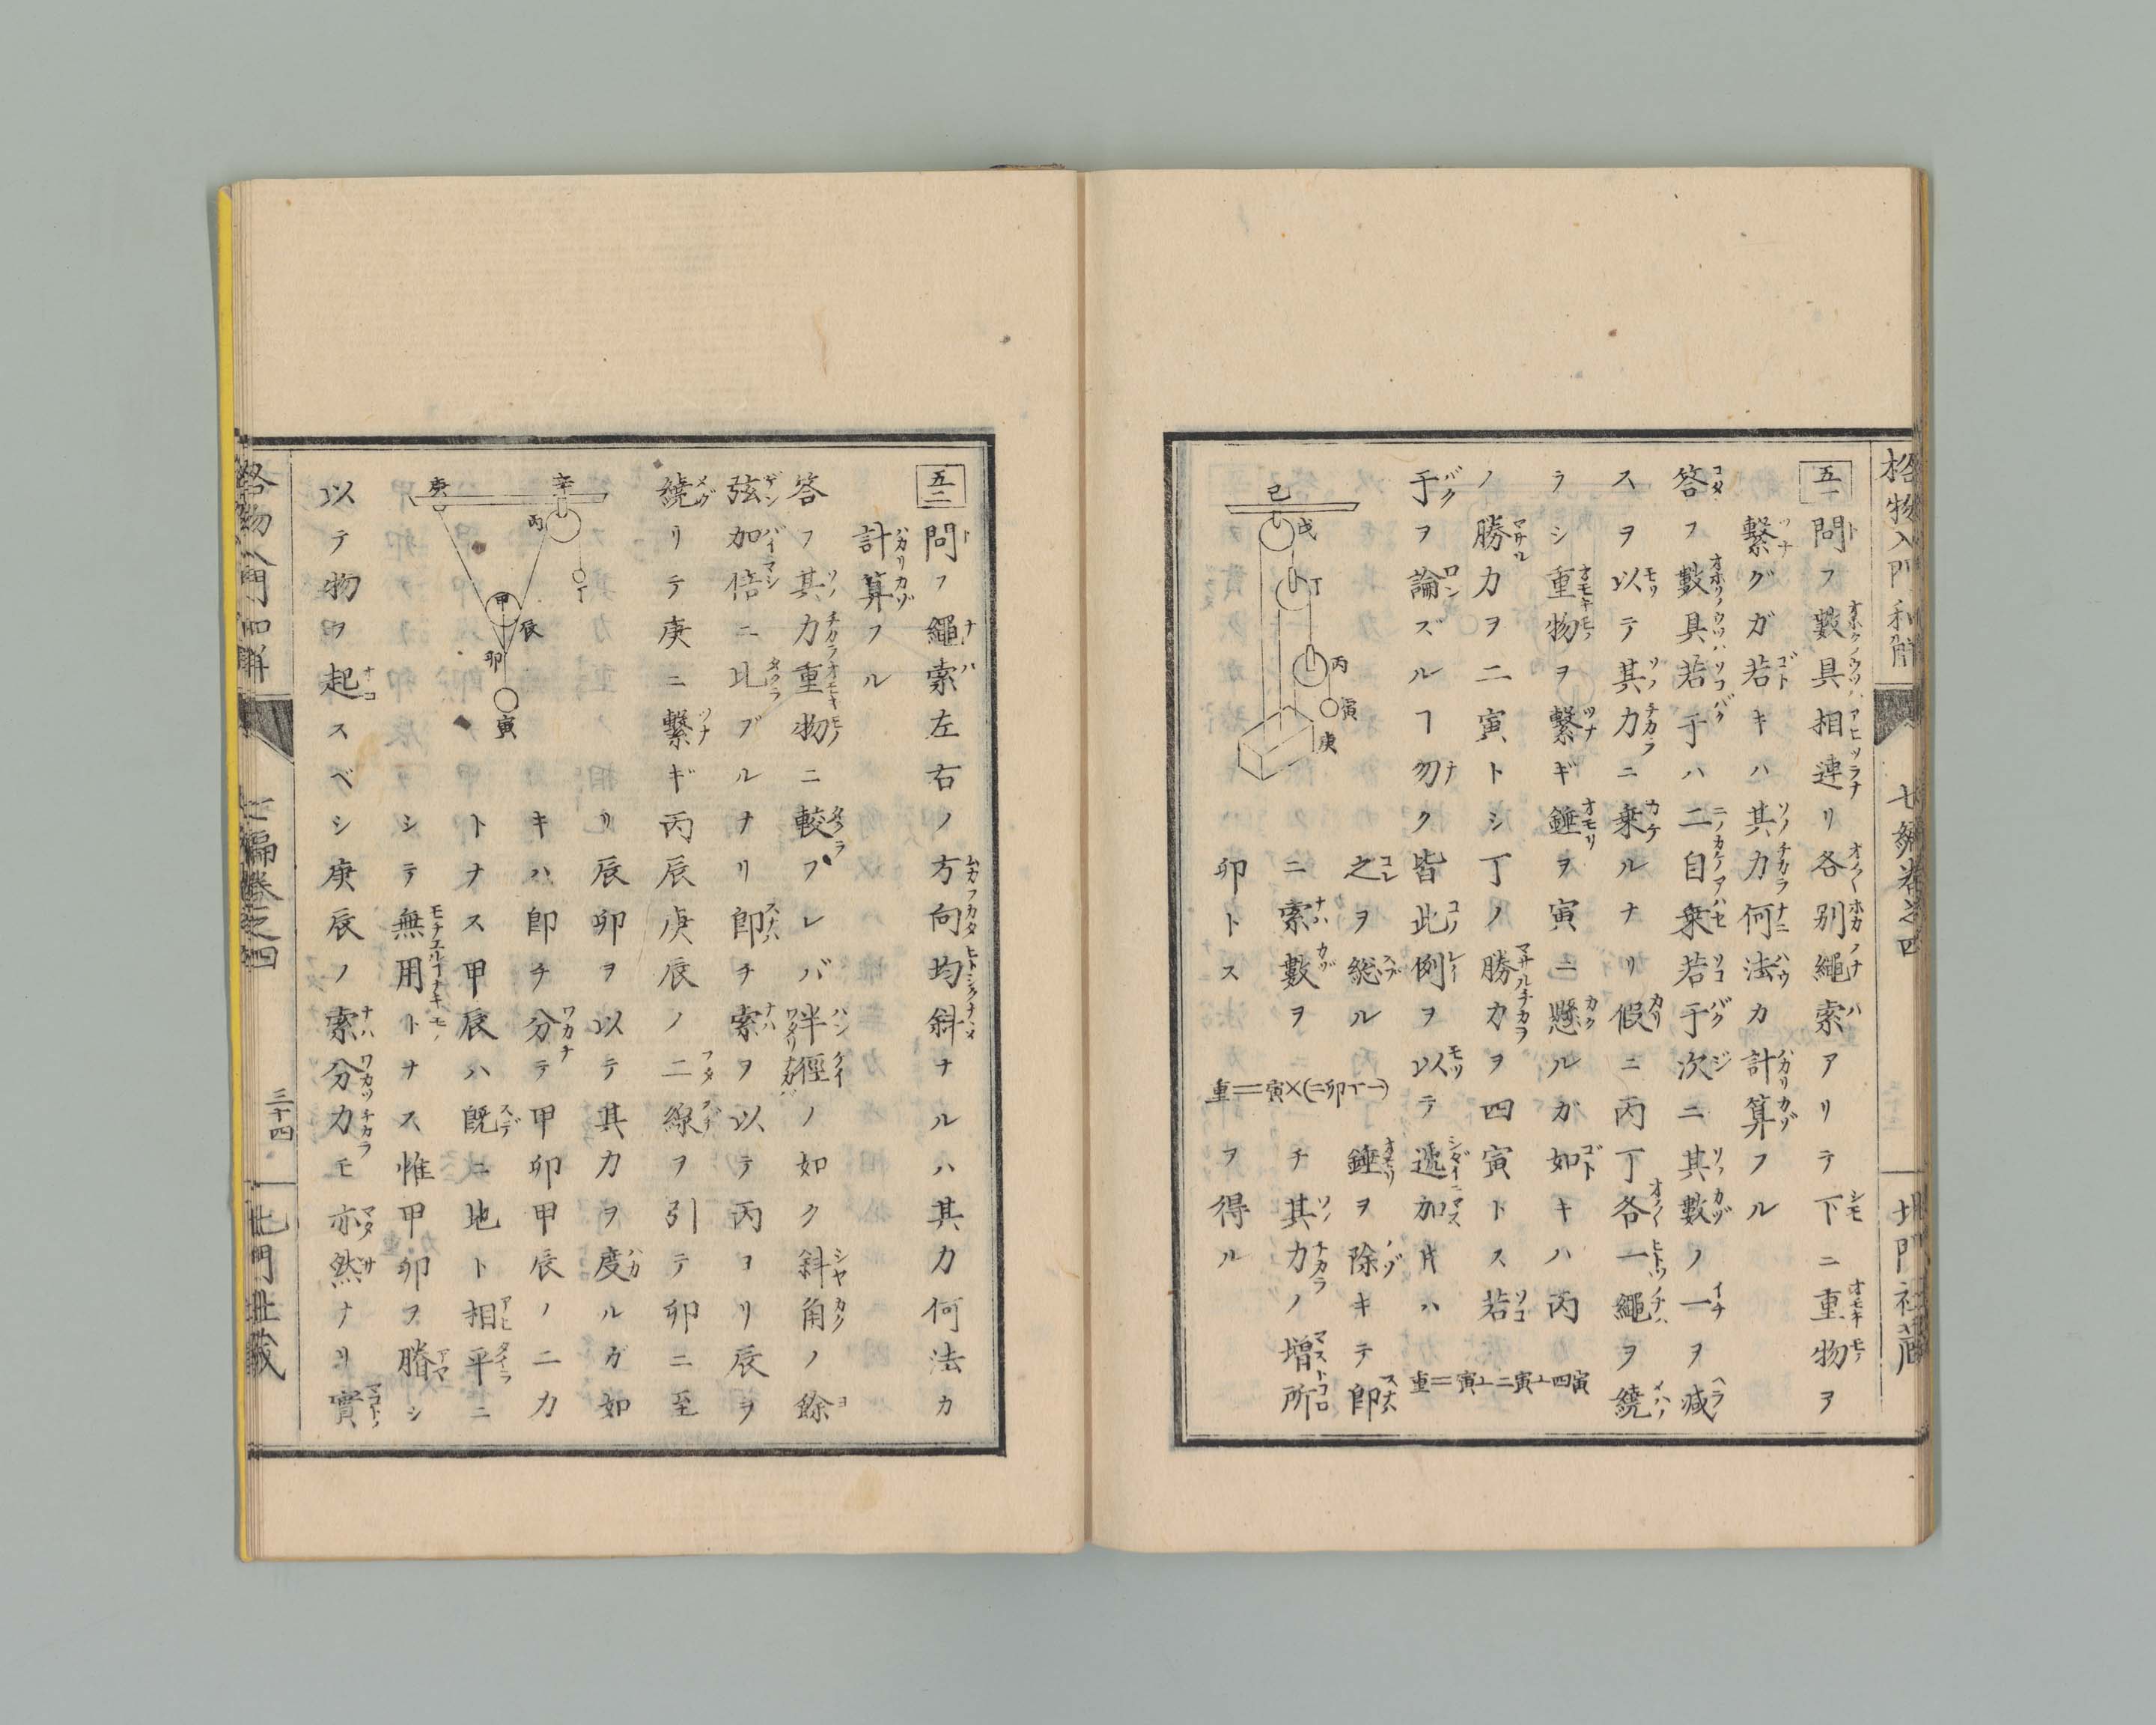 格物入門和解
七編卷之四
北門社藏
五一
問フ數具相連リ各別繩索アリテ下ニ重物ヲ
繋グガ若キハ其力何法カ計算フル
答フ數具若干ハ二自乗若干次ニ其數ノ一ヲ減
スヲ以テ其力ニ乗ルナリ假ニ丙丁各一繩ヲ繞
ラシ重物ヲ繋ギ錘ヲ寅ニ懸ルガ如キハ丙
ノ勝力ヲ二寅トシ丁ノ勝力ヲ四寅トス若
干ヲ論ズルヿ勿ク皆此例ヲ以テ遞加片ハ
重＝寅⊥二寅⊥四寅
之ヲ総ル
錘ヲ除キテ卽
重＝寅×(二卯丅一)
ニ索數ヲ
チ其力ノ増所
卯トス
ヲ得ル
己
戊
丁
丙
寅
庚
五二
問フ繩索左右ノ方向均斜ナルハ其力何法カ
計算フル
答フ其力重物ニ較フレバ半徑ノ如ク斜角ノ餘
弦加倍ニ比ブルナリ卽チ索ヲ以テ丙ヨリ辰ヲ
繞リテ庚ニ繋ギ丙辰庚辰ノ二線ヲ引テ卯ニ至
リ辰卯ヲ以テ其力ヲ度ルガ如
キハ卽チ分テ甲卯甲辰ノ二力
トナス甲辰ハ既ニ地ト相平ニ
シテ無用トナス惟甲卯ヲ賸シ
以テ物ヲ起スベシ庚辰ノ索分力モ亦然ナリ實
庚
辛
丙
丁
甲
辰
卯
寅
格物入門和解
七編卷之四
三十四
北門社藏